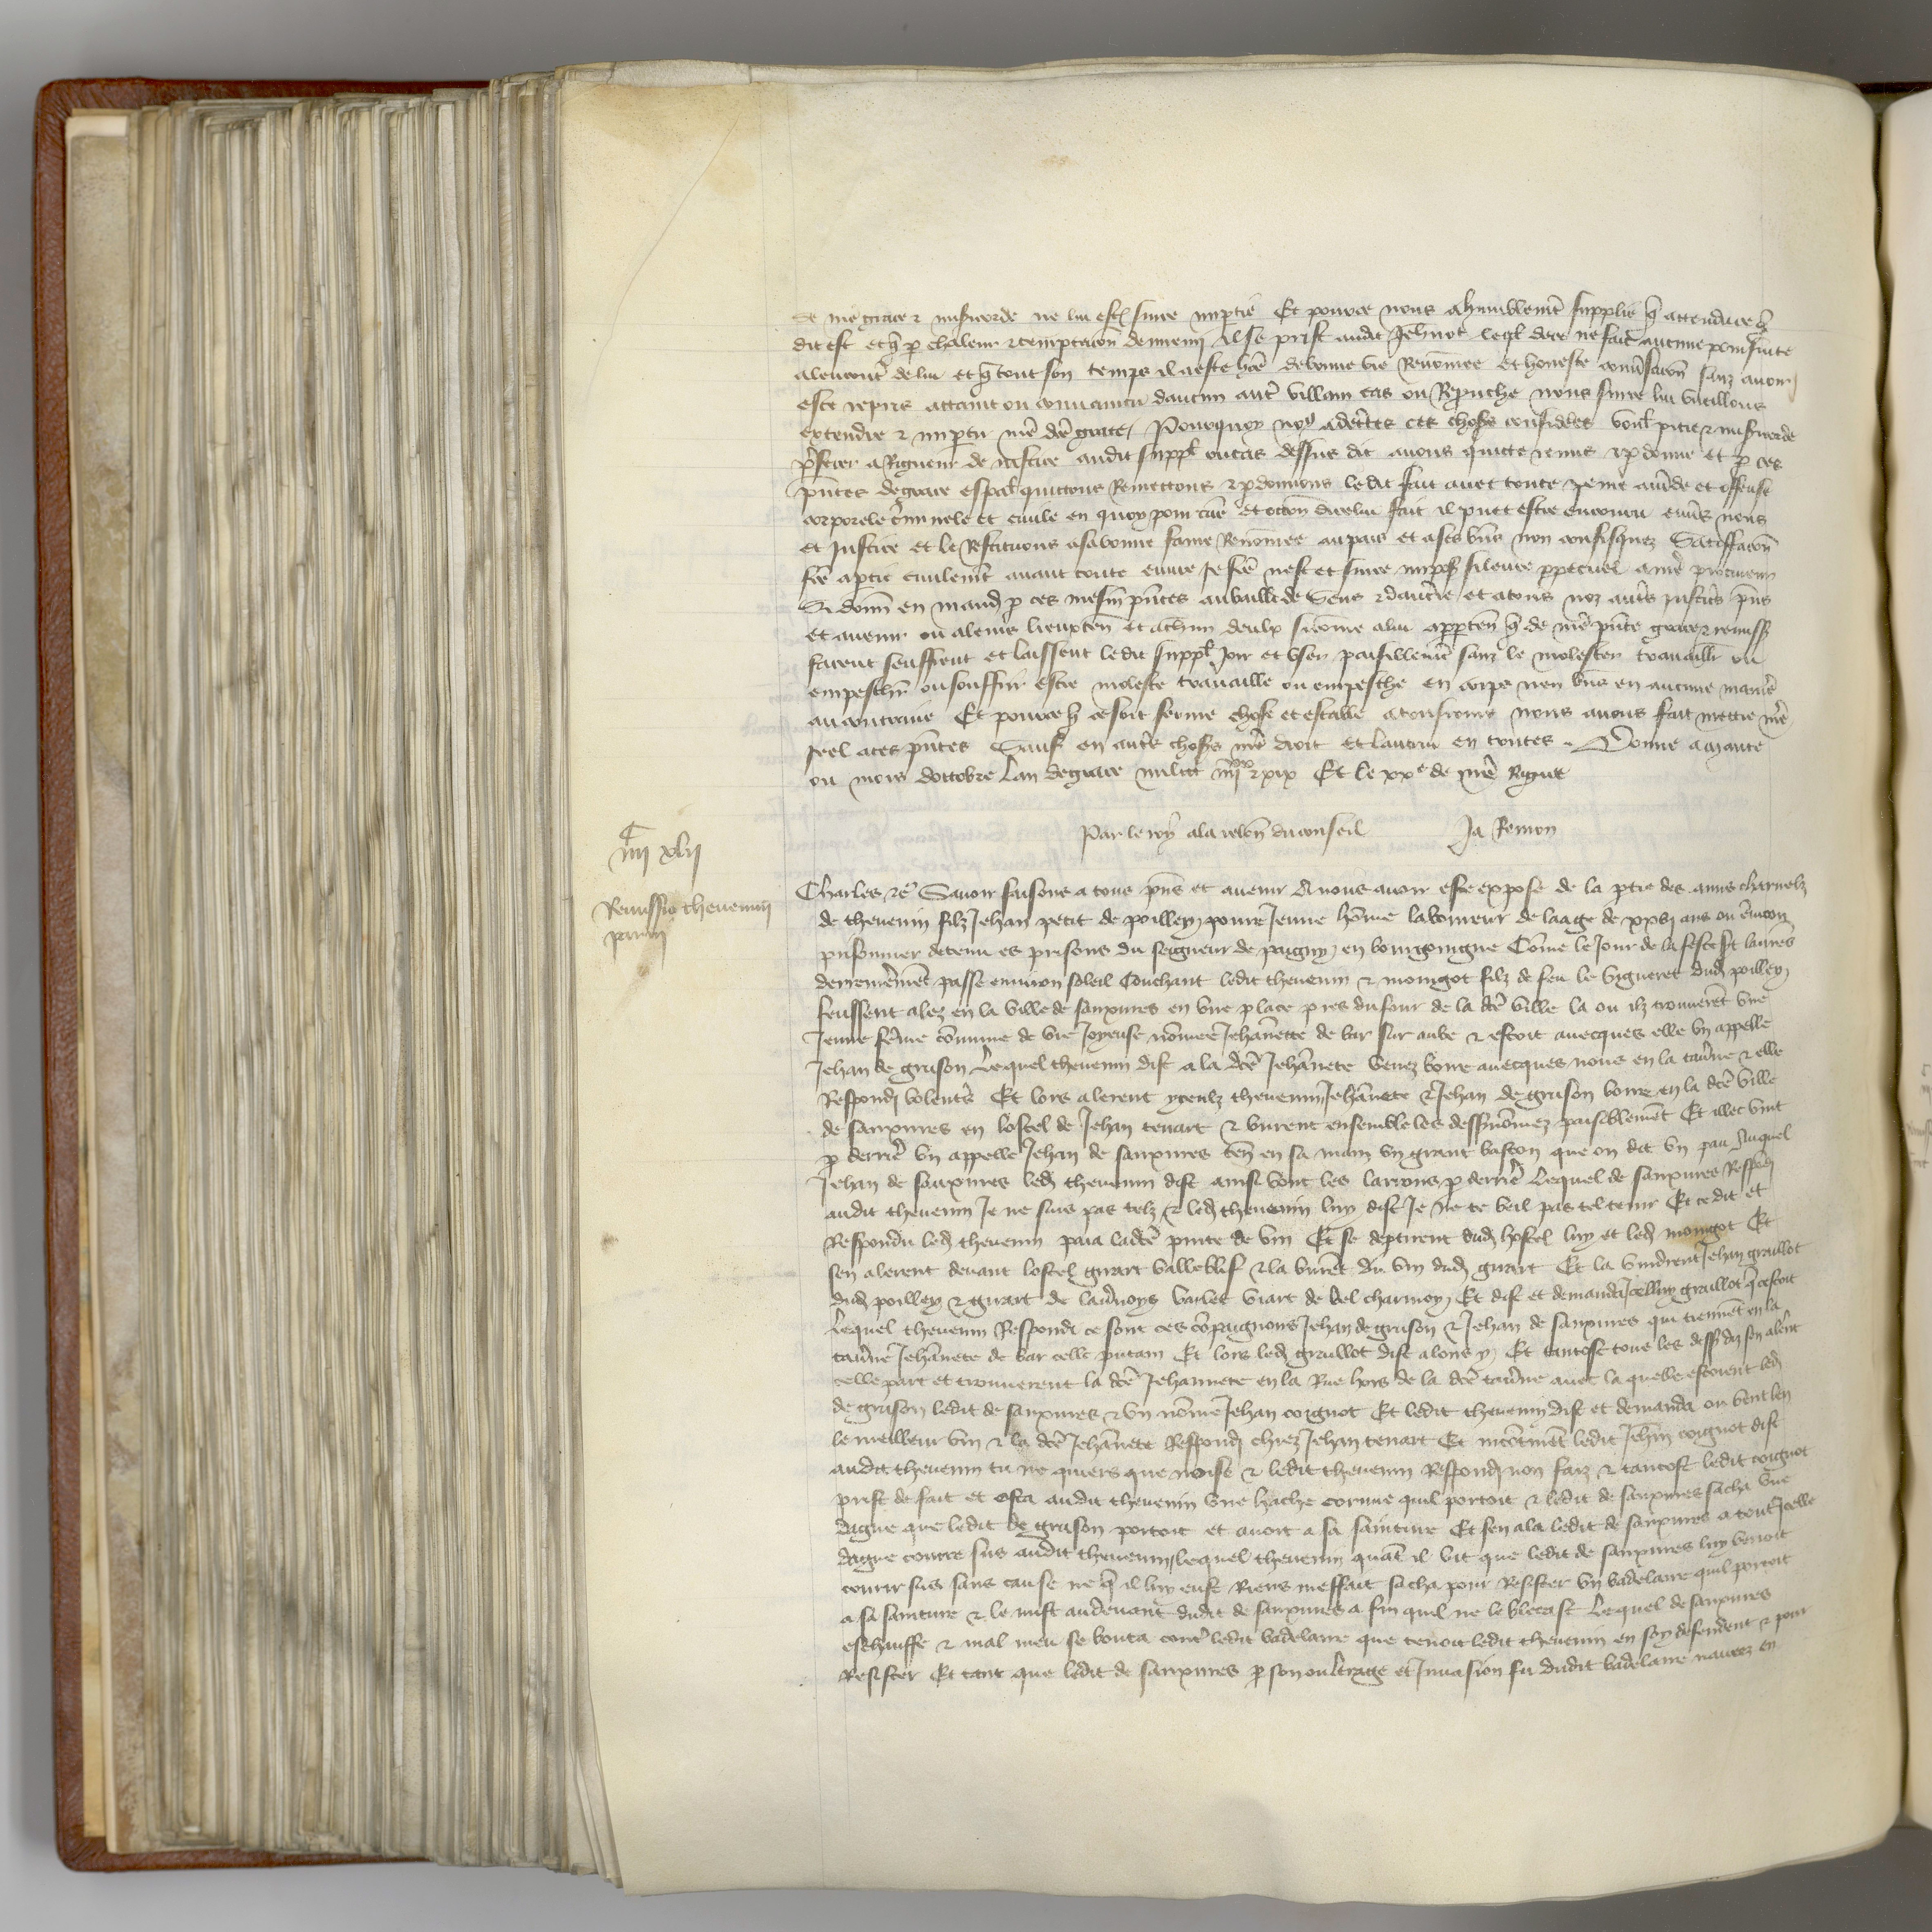 de nre grace et misericorde ne lui est sur ce impartie Et pource nous a humblement supplie que attendu ce que
dit est et que par chaleur et temptacion dennemi il se prist audit Jehnot lequel dece ne fait aucune poursuite
alencontre de lui et que tout son temps il a este homme de bonne vie Renommee et honeste conversacion sanz avoir
este repris attaint ou convaincu daucun autre villain cas ou Reprouche nous sur ce lui vueillons
extendre et impartir nre dicte grace Pourquoy nous adcertes ces choses considerees voulans pitie et misericorde
preferer a Rigueur de justice audit suppl ou cas dessus dit avons quitte remis et pardonne et par ces
presentes de grace especial quittons Remettons et pardonnons ledit fait avec toute peine amende et offense
corporele criminele et civile en quoy pour cause et occasion dicelui fait il puet estre encouru envers nous
et Justice et le Restituons a sa bonne fame Renommee au pais et a ses biens non confisquez Satisfacion
faicte a partie civilement avant toute euvre se faicte nest et sur ce imposons silence perpetuel a nre procureur
Si donnons en mandement par ces mesmes presentes au bailli de Sens et daucerre et a touz noz autres justiciers presens
et avenir ou a leurs lieuxtenans et a chascun deulx si comme a lui appartendra que de nre presente grace et remission
facent seuffrent et laissent ledit suppl joir et user paisiblement sanz le molester travaillier ou
empeschier ou souffrir estre moleste travaille ou empesche en corps nen biens en aucune maniere
au contraire Et pource que ce soit ferme chose et estable a tousjours nous avons fait mettre nre
seel a ces presentes Sauf en autres choses nre droit et lautrui en toutes Donne a mante
ou mois doctobre lan de grace mil ccc iiiixx et xix Et le xxe de nre Regne
Par le roy a la relacion du conseil Ja Remon
iiii c xlvii
Remissio thevenin
parvi
Charles etc Savoir faisons a tous presens et avenir A nous avoir este expose de la partie des amis charnelz
de thevenin filz Jehan petit de poilley povre Jeune homme laboureur de laage de xxvj ans ou environ
prisonnier detenu es prisons du seigneur de pagny en bourgoingne Comme le Jour de la feste st laurens
derrenierement passe environ soleil Couchant ledit thevenin et mongot filz de feu le vigneret dudit poilley
feussent alez en la ville de sauxures en une place pres du four de la dicte ville la ou ilz trouverent une
Jeune femme commune de vie Joyeuse nommee Jehannette de bar sur aube et estoit avecques elle un appelle
Jehan de grason Lequel thevenin dist a la dicte Jehannete venez boire avecques nous en la taverne et elle
Respondi volentiers Et lors alerent yceulz thevenin Jehannete et Jehan de grason boire en la dicte ville
de sauxures en lostel de Jehan tenart et burent ensemble les dessusnommez paisiblement Et illec vint
par derriere un appelle Jehan de sauxures tenant en sa main un grant baston que on dit un pau Auquel
Jehan de sauxures ledit thevenin dist ainsi vont les larrons par derriere Lequel de sauxures Respondi
audit thevenin Je ne suis pas telz et ledit thevenin luy dist Je ne te veil pas tel tenir Et ce dit et
Respondu ledit thevenin paia la dicte pinte de vin Et se departirent dudit hostel luy et ledit mongot Et
sen alerent devant lostel girart balleblif et la burent du vin dudit girart Et la vindrent Jehan graillot
dudit poilley et girart de lavernoys varlet viart de bel charmoy Et dist et demanda Icelluy graillot que cestoit
Lequel thevenin Respondi ce sont ces compaignons Jehan de grason et Jehan de sauxures qui tiennent en la
taverne Jehannete de bar celle putain Et lors ledit graillot dist alons y Et tantost tous les dessus diz sen alerent
celle part et trouverent la dicte Jehannete en la Rue hors de la dicte taverne avec la quelle estoient ledit
de grason ledit de sauxures et un nomme Jehan coignot Et ledit thevenin dist et demanda ou vent len
le meilleur vin et la dicte Jehannete Respondi chiez Jehan tenart Et incontinent ledit Jehan coignot dist
audit thevenin tu ne quiers que noise et ledit thevenin Respondi non faiz et tantost ledit coignot
prist de fait et osta audit thevenin une hache cornue quil portoit et ledit de sauxures sacha une
dague que ledit de grason portoit et avoit a sa sainture Et sen ala ledit de sauxures a tout Icelle
dague courre sus audit thevenin lequel thevenin quant il vit que ledit de sauxures luy venoit
courir sus sans cause ne que il luy eust Riens meffait sacha pour Resister un badelaire quil portoit
a sa sainture et le mist au devant dudit de sauxures a fin quil ne le blecast Lequel de sauxures
eschauffe et mal meu se bouta contre ledit badelaire que tenoit ledit thevenin en soy defendent et pour
Resister Et tant que ledit de sauxures par son oultrage et Invasion fu dudit badelaire navrez en